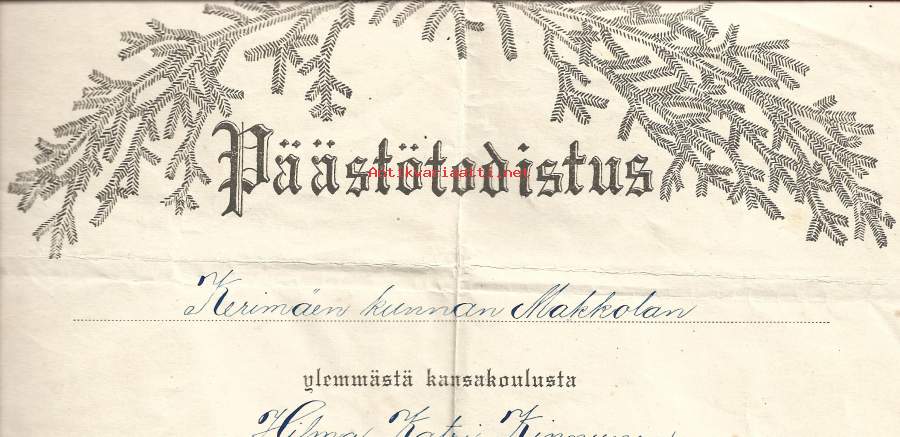 Päästötodistus
Antikvariaatti.net
Kerimäen kunnan Makkolan
ylemmästä kansakoulusta
Hilma Katri